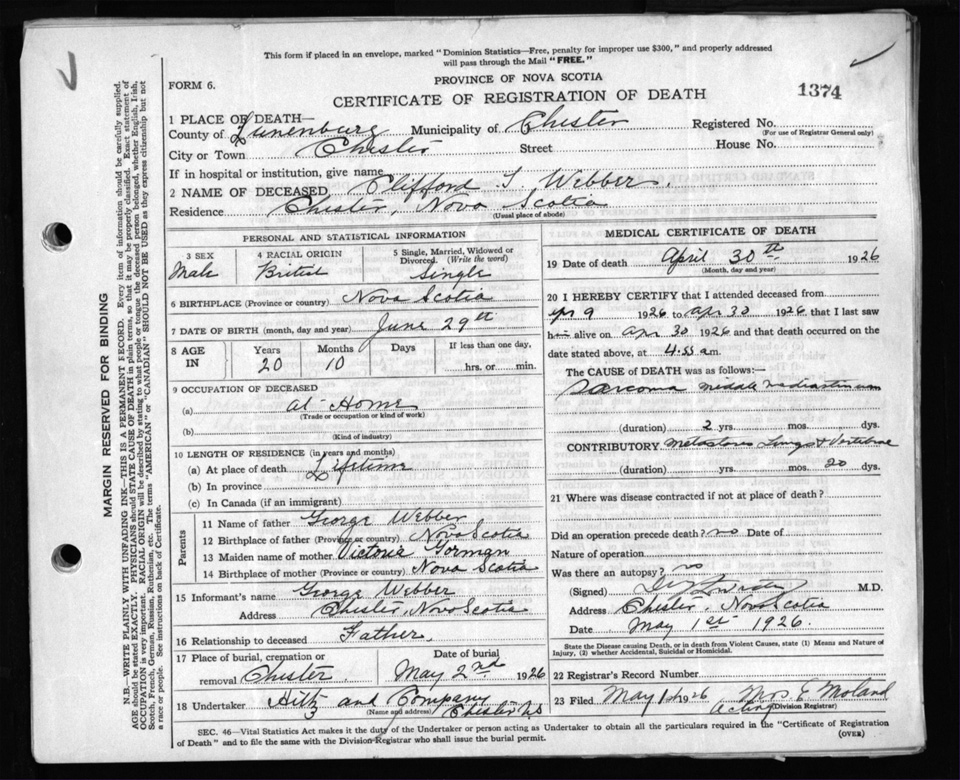 This form if placed in an envelope, marked "Dominion Statistics—Free, penalty for improper use $300," and properly addressed
will pass through the Mail "FREE."
FORM 6.
PROVINCE OF NOVA SCOTIA
CERTIFICATE OF REGISTRATION OF DEATH
1374
1 PLACE OF DEATH—
County of Lunenburg Municipality of Chester Registered No.
(For use of Registrar General only)
City or Town Chester Street House No.
If in hospital or institution, give name
2 NAME OF DECEASED Clifford Webber.
Residence Chester, Nova Scotia
(Usual place of abode)
PERSONAL AND STATISTICAL INFORMATION
3 SEX 4 RACIAL ORIGIN 5 Single, Married, Widowed or
Divorced. (Write the word)
Male British Single
6 BIRTHPLACE (Province or country) Nova Scotia
7 DATE OF BIRTH (month, day and year) June 29th
8 AGE IN Years Months Days If less than one day,
20 10 hrs. or min.
9 OCCUPATION OF DECEASED
(a) at Home
(Trade or occupation or kind of work)
(b)
(Kind of industry)
10 LENGTH OF RESIDENCE (in years and months)
(a) At place of death Lifetime
(b) In province
(c) In Canada (if an immigrant)
Parents
11 Name of father George Webber
12 Birthplace of father (Province or country) Nova Scotia
13 Maiden name of mother Victoria Gorman
14 Birthplace of mother (Province or country) Nova Scotia
15 Informant's name George Webber
Address Chester, Nova Scotia
16 Relationship to deceased Father,
17 Place of burial, cremation or Date of burial
removal Chester May 2nd 1926
18 Undertaker Hiltz and Company
(Name and address) Chester NS
MEDICAL CERTIFICATE OF DEATH
19 Date of death April 30th 1926
(Month, day and year)
20 I HEREBY CERTIFY that I attended deceased from
9 1926 to apr 30 1926 that I last saw
him alive on apr 30 1926 and that death occurred on the
date stated above, at 4.55 am.
The CAUSE OF DEATH was as follows:—
Sarcoma middle mediastinum
(duration) 2 yrs. mos. dys.
CONTRIBUTORY metastases Lungs & Vertebrae
(duration) yrs. mos. 20 dys.
21 Where was disease contracted if not at place of death?
Did an operation precede death? no Date of
Nature of operation
Was there an autopsy? no
(Signed) M.D.
Address Chester, Nova Scotia
Date May 1st 1926.
State the Disease causing Death, or in death from Violent Causes, state (1) Means and Nature of
Injury, (2) whether Accidental, Suicidal or Homicidal.
22 Registrar's Record Number
23 Filed May 1st 1926
Acting (Division Registrar)
SEC. 46—Vital Statistics Act makes it the duty of the Undertaker or person acting as Undertaker to obtain all the particulars required in the "Certificate of Registration
of Death" and to file the same with the Division Registrar who shall issue the burial permit. (OVER)
MARGIN RESERVED FOR BINDING
N.B.—WRITE PLAINLY WITH UNFADING INK—THIS IS A PERMANENT RECORD. Every item of information should be carefully supplied.
AGE should be stated EXACTLY. PHYSICIANS should STATE CAUSE OF DEATH in plain terms, so that it may be properly classified. Exact statement of
OCCUPATION is very important. RACIAL ORIGIN will be described by stating to what people or tongue the deceased person belonged, whether English, Irish,
Scotch, French, German, Russian, Ruthenian, etc. The terms "AMERICAN" or "CANADIAN" SHOULD NOT BE USED as they express citizenship but not
a race or people. See instructions on back of Certificate.